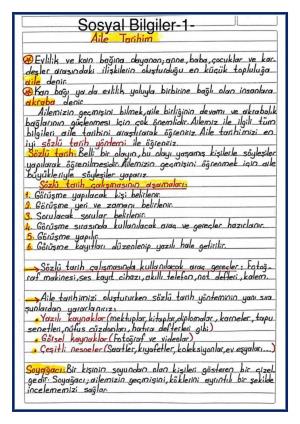 Sosyal Bilgiler-1-
Aile Tarihim
Evlilik ve kan bağına dayanan; anne, baba, çocuklar ve kar-
deşler arasındaki ilişkilerin oluşturduğu en küçük topluluğa
aile denir.
Kan bağı ya da evlilik yoluyla birbirine bağlı olan insanlara
akraba denir.
Ailemizin geçmişini bilmek, aile birliğinin devamı ve akrabalık
bağlarının güçlenmesi için çok önemlidir. Ailemiz ile ilgili tüm
bilgileri aile tarihini araştırarak öğreniriz. Aile tarihimizi en
iyi sözlü tarih yöntemi ile öğreniriz.
Sözlü tarih: Belli bir olayın, bu olayı yaşamış kişilerle söyleşiler
yapılarak öğrenilmesidir. Ailemizin geçmişini öğrenmek için aile
büyükleriyle söyleşiler yaparız.
Sözlü tarih çalışmasının aşamaları:
1. Görüşme yapılacak kişi belirlenir.
2. Görüşme yeri ve zamanı belirlenir.
3. Sorulacak sorular belirlenir.
4. Görüşme sırasında kullanılacak araç ve gereçler hazırlanır.
5. Görüşme yapılır.
6. Görüşme kayıtları düzenlenip yazılı hale getirilir.
Sözlü tarih çalışmasında kullanılacak araç gereçler: Fotoğ-
raf makinesi, ses kayıt cihazı, akıllı telefon, not defteri, kalem...
Aile tarihimizi oluştururken sözlü tarih yönteminin yanı sıra
şunlardan yararlanırız:
Yazılı kaynaklar (mektuplar, kitaplar, diplomalar, karneler, tapu
senetleri, nüfus cüzdanları, hatıra defterleri gibi)
Görsel kaynaklar (Fotoğraf ve videolar)
Çeşitli nesneler (Saatler, kıyafetler, koleksiyonlar, ev eşyaları...)
Soyağacı: Bir kişinin soyundan olan kişileri gösteren bir çizel
gedir. Soyağacı; ailemizin geçmişini, köklerini ayrıntılı bir şekilde
incelememizi sağlar.